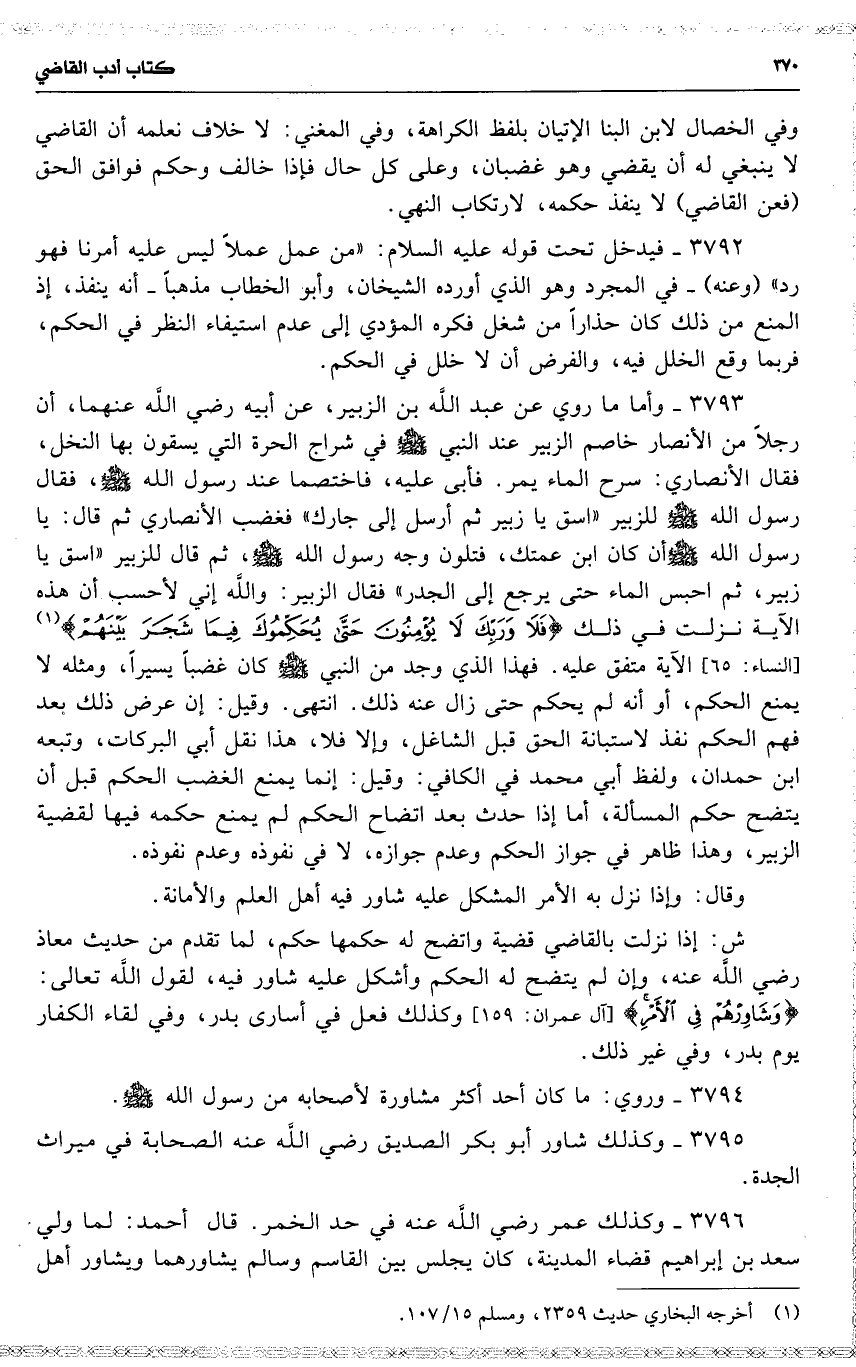 ٣٧٠ كتاب أدب القاضي
وفي الخصال لابن البنا الإتيان بلفظ الكراهة، وفي المغني: لا خلاف نعلمه أن القاضي
لا ينبغي له أن يقضي وهو غضبان، وعلى كل حال فإذا خالف وحكم فوافق الحق
(فعن القاضي) لا ينفذ حكمه، لارتكاب النهي.
٣٧٩٢ ـ فيدخل تحت قوله عليه السلام: «من عمل عملاً ليس عليه أمرنا فهو
رد» (وعنه) ـ في المجرد وهو الذي أورده الشيخان، وأبو الخطاب مذهباً ـ أنه ينفذ، إذ
المنع من ذلك كان حذاراً من شغل فكره المؤدي إلى عدم استيفاء النظر في الحكم،
فربما وقع الخلل فيه، والفرض أن لا خلل في الحكم.
٣٧٩٣ ـ وأما ما روي عن عبد اللَّه بن الزبير، عن أبيه رضي اللَّه عنهما، أن
رجلاً من الأنصار خاصم الزبير عند النبي ﷺ في شراج الحرة التي يسقون بها النخل،
فقال الأنصاري: سرح الماء يمر. فأبى عليه، فاختصما عند رسول الله ﷺ، فقال
رسول الله ﷺ للزبير «اسق يا زبير ثم أرسل إلى جارك» فغضب الأنصاري ثم قال: يا
رسول الله ﷺ أن كان ابن عمتك، فتلون وجه رسول الله ﷺ، ثم قال للزبير «اسق يا
زبير، ثم احبس الماء حتى يرجع إلى الجدر» فقال الزبير: واللَّه إني لأحسب أن هذه
الآية نزلت في ذلك ﴿فَلَا وَرَبِّكَ لَا يُؤْمِنُونَ حَتَّىٰ يُحَكِّمُوكَ فِيمَا شَجَرَ بَيْنَهُمْ﴾(١)
[النساء: ٦٥] الآية متفق عليه. فهذا الذي وجد من النبي ﷺ كان غضباً يسيراً، ومثله لا
يمنع الحكم، أو أنه لم يحكم حتى زال عنه ذلك. انتهى. وقيل: إن عرض ذلك بعد
فهم الحكم نفذ لاستبانة الحق قبل الشاغل، وإلا فلا، هذا نقل أبي البركات، وتبعه
ابن حمدان، ولفظ أبي محمد في الكافي: وقيل: إنما يمنع الغضب الحكم قبل أن
يتضح حكم المسألة، أما إذا حدث بعد اتضاح الحكم لم يمنع حكمه فيها لقضية
الزبير، وهذا ظاهر في جواز الحكم وعدم جوازه، لا في نفوذه وعدم نفوذه.
وقال: وإذا نزل به الأمر المشكل عليه شاور فيه أهل العلم والأمانة.
ش: إذا نزلت بالقاضي قضية واتضح له حكمها حكم، لما تقدم من حديث معاذ
رضي اللَّه عنه، وإن لم يتضح له الحكم وأشكل عليه شاور فيه، لقول اللَّه تعالى:
﴿وَشَاوِرْهُمْ فِي ٱلْأَمْرِ﴾ [آل عمران: ١٥٩] وكذلك فعل في أسارى بدر، وفي لقاء الكفار
يوم بدر، وفي غير ذلك.
٣٧٩٤ ـ وروي: ما كان أحد أكثر مشاورة لأصحابه من رسول الله ﷺ.
٣٧٩٥ ـ وكذلك شاور أبو بكر الصديق رضي اللَّه عنه الصحابة في ميراث
الجدة.
٣٧٩٦ ـ وكذلك عمر رضي اللَّه عنه في حد الخمر. قال أحمد: لما ولي
سعد بن إبراهيم قضاء المدينة، كان يجلس بين القاسم وسالم يشاورهما ويشاور أهل
(١) أخرجه البخاري حديث ٢٣٥٩، ومسلم ١٥/ ١٠٧.